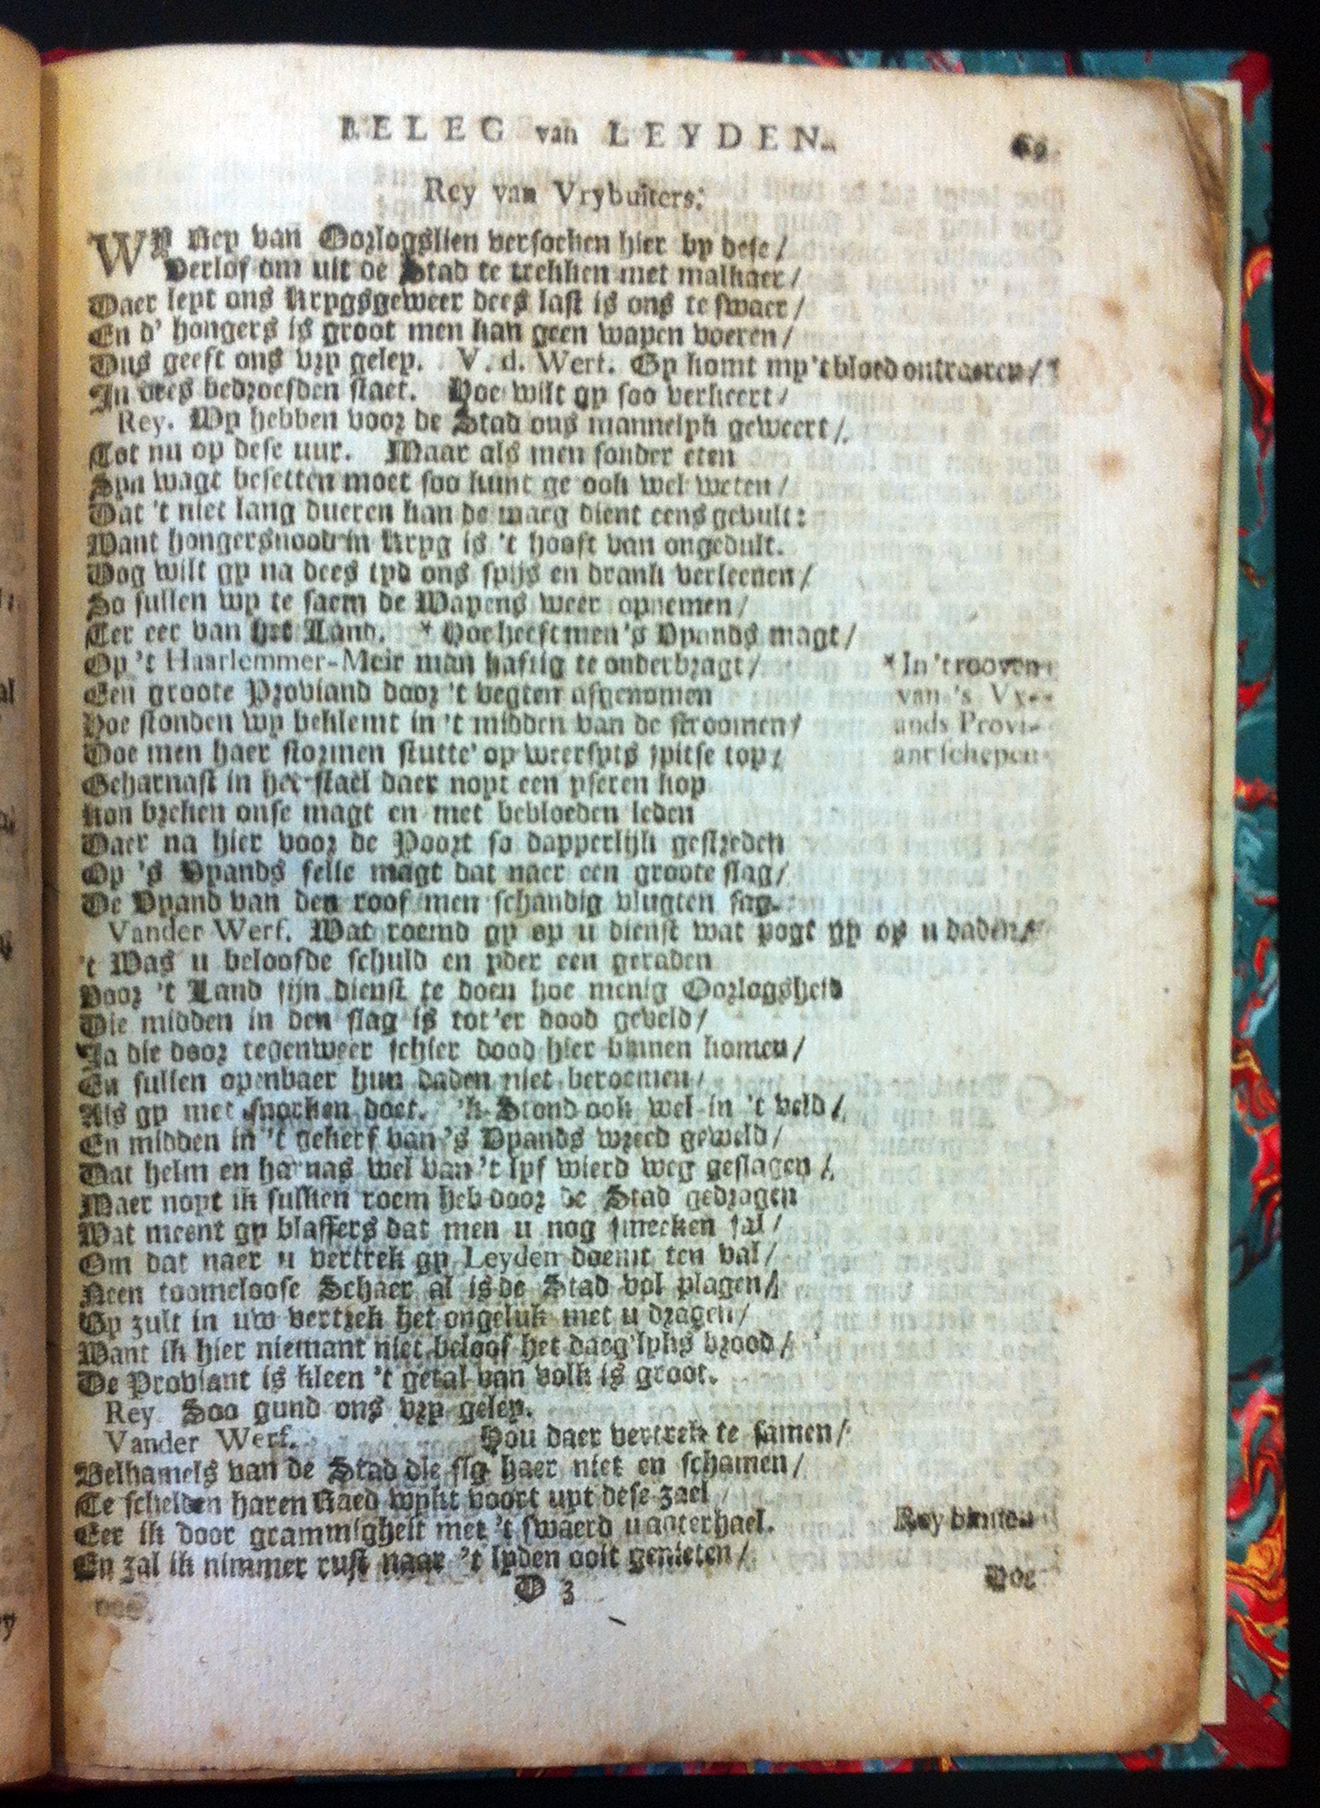 BELEG van LEYDEN.
Rey van Vrybuiters.
WY Rey van Oorlogslien versoeken hier by dese /
Verlof om uit de Stad te trekken met malkaer /
Daer leyt ons Krygsgeweer dees last is ons te swaer /
En d' hongers is groot men kan geen wapen voeren /
Dus geeft ons vry geley. V. d. Werf. Gy komt my 't bloed ontroeren /
In dees bedroefden staet. Hoe wilt gy soo verkeert /
Rey. Wy hebben voor de Stad ons mannelyk geweert /
Tot nu op dese uur. Maar als men sonder eten
Syn wagt besetten moet soo kunt ge ook wel weten /
Dat 't niet lang dueren kan de maeg dient eens gevult:
Want hongersnood in Kryg is 't hooft van ongedult.
Dog wilt gy na dees tyd ons spijs en drank verleenen /
So sullen wy te saem de Wapens weer opnemen /
Ter eer van het Land. * Hoe heeft men 's Vyands magt /
Op 't Haarlemmer-Meir man haftig te onderbragt /
* In 't rooven
Een groote Proviand door 't vegten afgenomen
van 's Vy-
Hoe stonden wy beklemt in 't midden van de stroomen /
ands Provi-
Doe men haer stormen stutte' op weersyts spitse top;
antschepen
Geharnast in het stael daer noyt een yseren kop
Kon breken onse magt en met bebloeden leden
Daer na hier voor de Poort so dapperlijk gestreden
Op 's Vyands felle magt dat naer een groote slag /
De Vyand van den roof men schandig vlugten sag.
Vander Werf. Wat roemd gy op u dienst wat pogt gy op u daden /
't Was u beloofde schuld en yder een geraden
Voor 't Land sijn dienst te doen hoe menig Oorlogsheld
Die midden in den slag is tot 'er dood geveld /
Ja die door tegenweer schier dood hier binnen komen /
En sullen openbaer hun daden niet beroemen /
Als gy met snorken doet. 'k Stond ook wel in 't veld /
En midden in 't gekerf van 's Vyands wreed geweld /
Dat helm en harnas wel van 't lyf wierd weg geslagen /
Maer noyt ik sulken roem heb door de Stad gedragen
Wat meent gy blaffers dat men u nog smeeken sal /
Om dat naer u vertrek gy Leyden doemt ten val /
Neen toomeloose Schaer al is de Stad vol plagen /
Gy zult in uw vertrek het ongeluk met u dragen /
Want ik hier niemant niet beloof het daeg'lyks brood /
De Proviant is kleen 't getal van volk is groot.
Rey. Soo gund ons vry geley.
Vander Werf. Hou daer vertrek te samen /
Belhamels van de Stad die sig haer niet en schamen /
Te schelden haren Raed wykt voort uyt dese zael /
Eer ik door grammigheit met 't swaerd u agterhael.
Rey binnen
En zal ik nimmer rust naar 't lyden ooit genieten /
D 3
Hoe